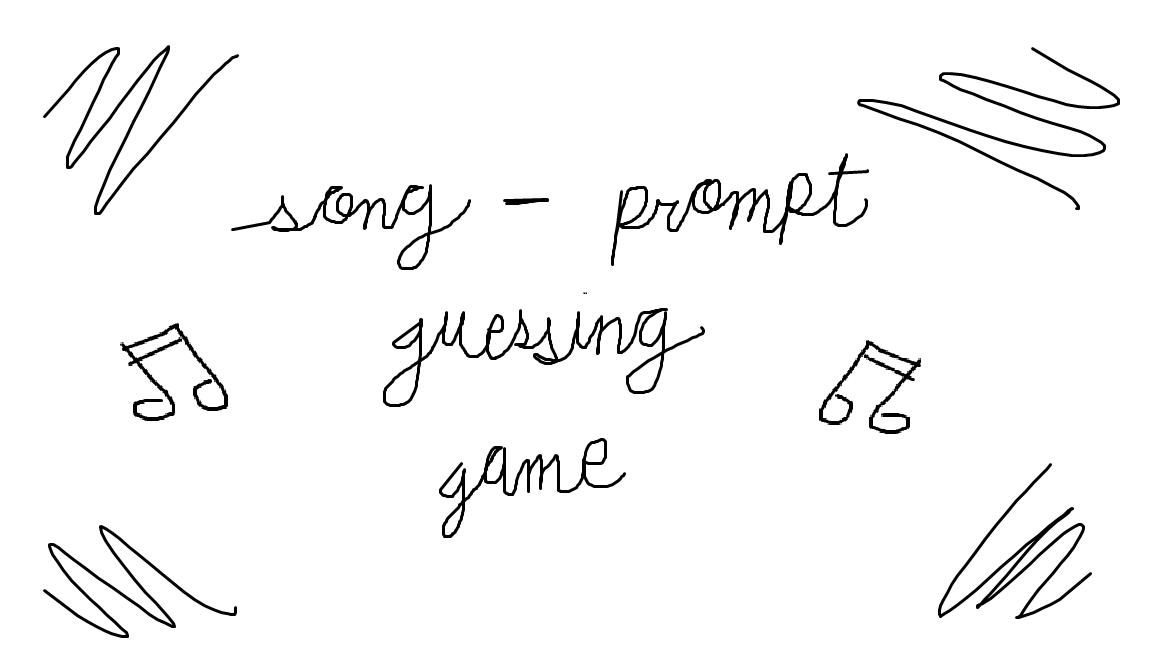 song - prompt
guessing
game